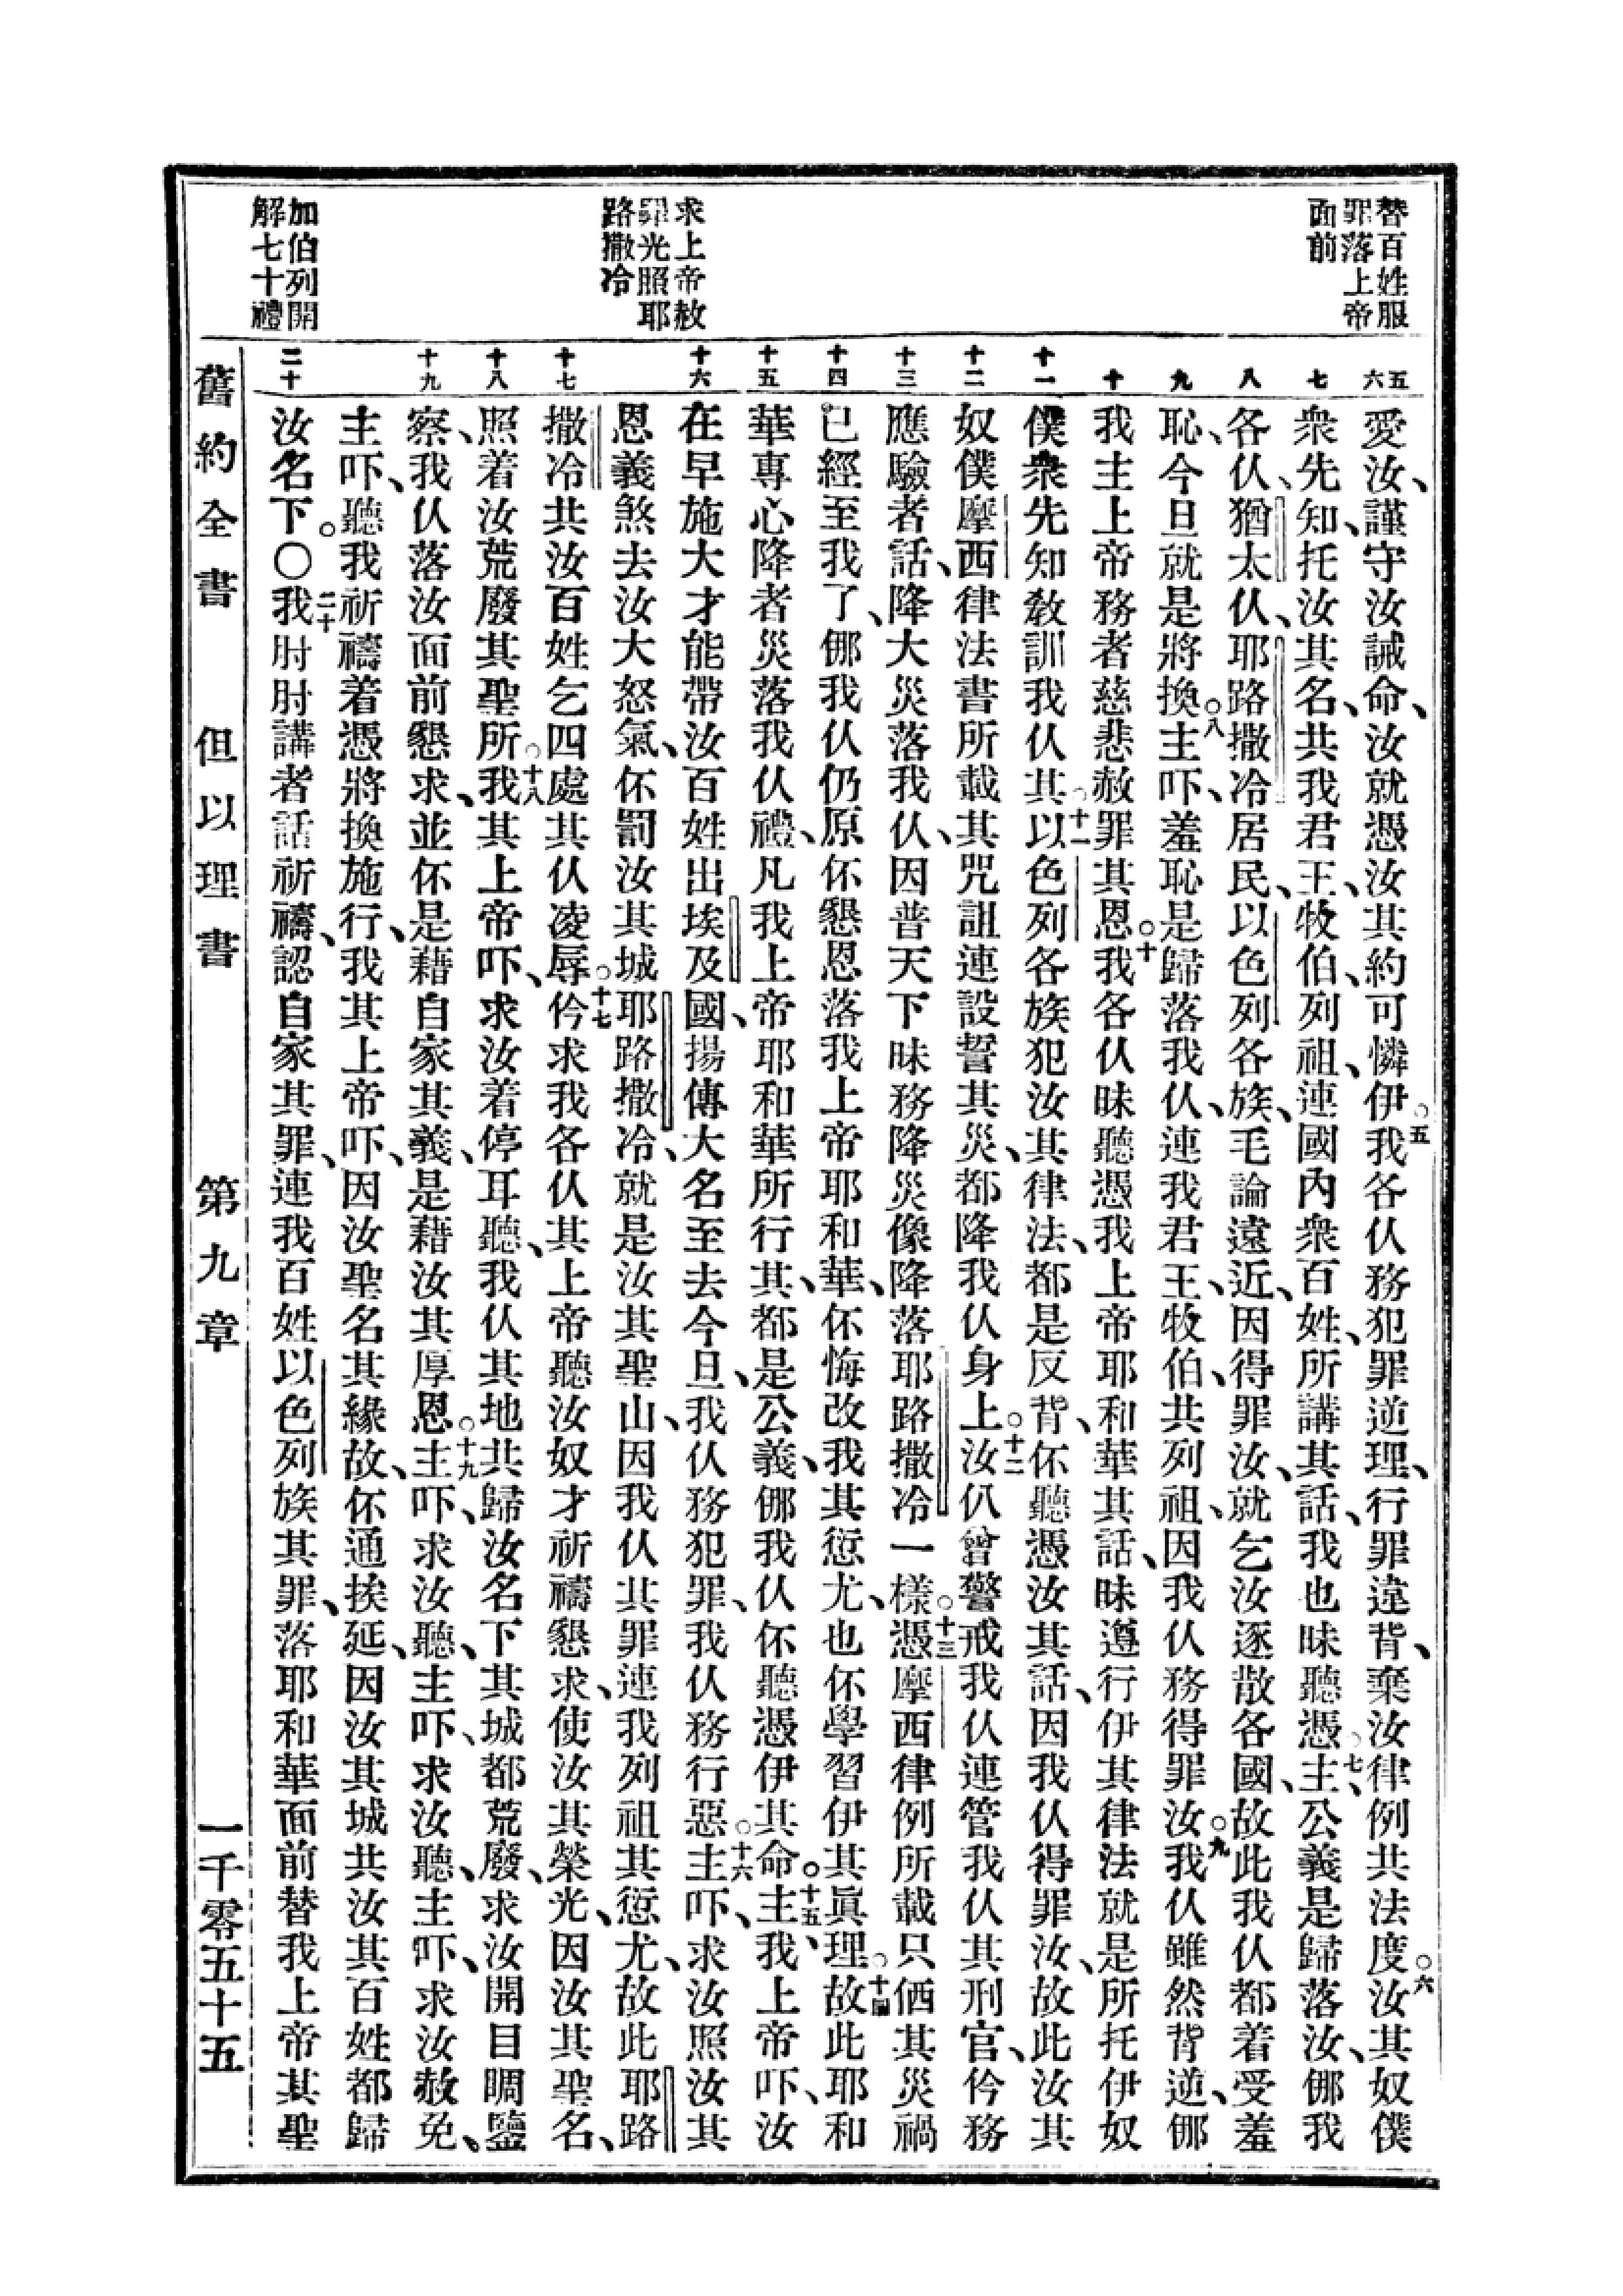 替百姓服
罪落上帝
面前
求上帝赦
罪光照耶
路撒冷
加伯列開
解七十禮
五
六
七
八
九
十
十一
十二
十三
十四
十五
十六
十七
十八
十九
二十
愛汝、謹守汝誡命、汝就憑汝其約可憐伊○五我各仈務犯罪逆理、行罪違背、棄汝律例共法度○六汝其奴僕
衆先知、托汝其名、共我君王、牧伯、列祖、連國內衆百姓、所講其話、我也昧聽憑○七主、公義是歸落汝、倻我
各仈、猶太仈、耶路撒冷居民、以色列各族、毛論遠近、因得罪汝、就乞汝逐散各國、故此我仈都着受羞
恥、今旦就是將換○八主吓、羞恥是歸落我仈、連我君王、牧伯、共列祖、因我仈務得罪汝○九我仈雖然背逆、倻
我主上帝務者慈悲赦罪其恩○十我各仈昧聽憑我上帝耶和華其話、昧遵行伊其律法就是所托伊奴
僕衆先知教訓我仈其○十一以色列各族犯汝其律法、都是反背、伓聽憑汝其話、因我仈得罪汝、故此汝其
奴僕摩西律法書所載其咒詛連設誓其災、都降我仈身上○十二汝仈曾警戒我仈連管我仈其刑官、伶務
應驗者話、降大災落我仈、因普天下昧務降災像降落耶路撒冷一樣○十三憑摩西律例所載只倆其災禍
已經至我了、倻我仈仍原伓懇恩落我上帝耶和華、伓悔改我其愆尤、也伓學習伊其眞理○十四故此耶和
華專心降者災落我仈禮、凡我上帝耶和華所行其、都是公義、倻我仈伓聽憑伊其命○十五主、我上帝吓、汝
在早施大才能帶汝百姓出埃及國、揚傳大名至去今旦、我仈務犯罪、我仈務行惡○十六主吓、求汝照汝其
恩義煞去汝大怒氣、伓罰汝其城耶路撒冷、就是汝其聖山、因我仈其罪連我列祖其愆尤、故此耶路
撒冷共汝百姓乞四處其仈凌辱○十七伶求我各仈其上帝聽汝奴才祈禱懇求、使汝其榮光、因汝其聖名、
照着汝荒廢其聖所○十八我其上帝吓、求汝着停耳聽、我仈其地共歸汝名下其城、都荒廢、求汝開目睭鑒
察、我仈落汝面前懇求、並伓是藉自家其義、是藉汝其厚恩○十九主吓、求汝聽、主吓、求汝聽、主吓、求汝赦免、
主吓、聽我祈禱着憑將換施行、我其上帝吓、因汝聖名其緣故、伓通挨延、因汝其城共汝其百姓都歸
汝名下。〇二十我肘肘講者話祈禱、認自家其罪、連我百姓以色列族其罪、落耶和華面前替我上帝其聖
舊約全書　但以理書　第九章　一千零五十五